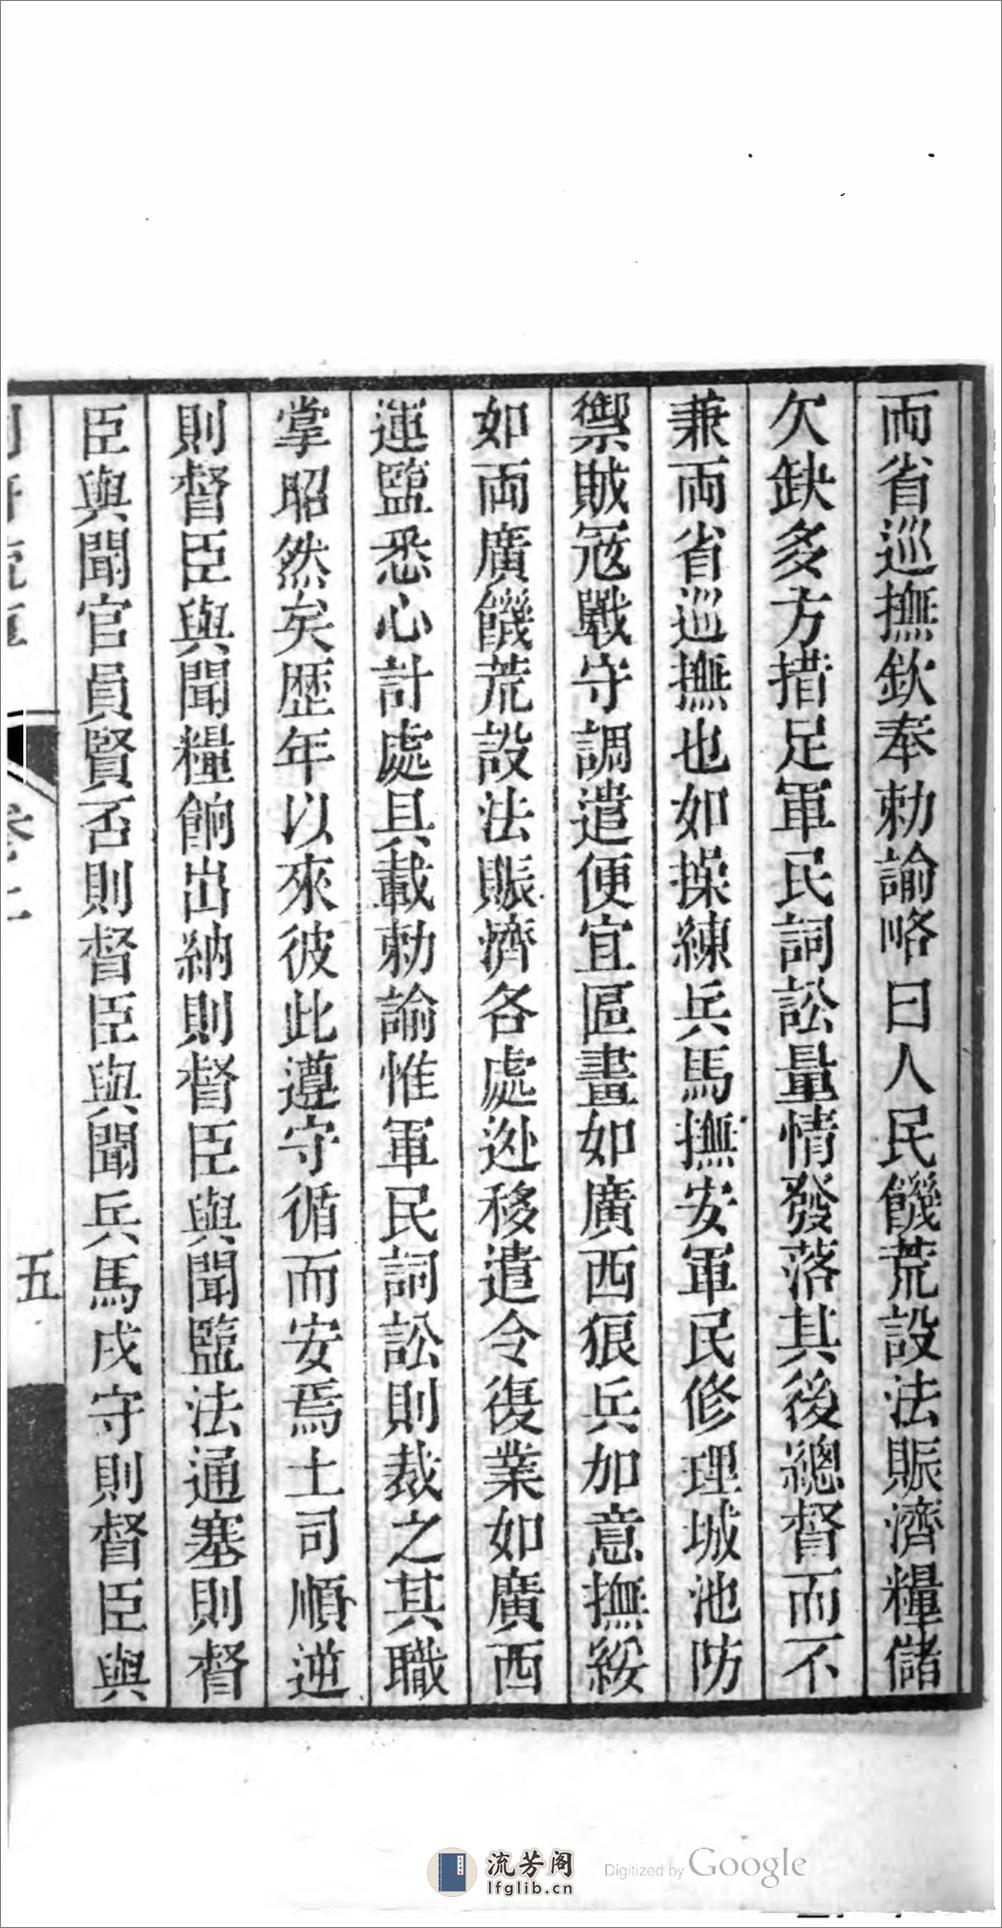 兩省巡撫欽奉勅諭略曰人民饑荒設法賑濟糧儲
欠缺多方措足軍民詞訟量情發落其後總督而不
兼兩省巡撫也如操練兵馬撫安軍民修理城池防
禦賊冦戰守調遣便宜區畫如廣西狼兵加意撫綏
如兩廣饑荒設法賑濟各處迯移遣令復業如廣西
運鹽悉心計處具載勅諭惟軍民詞訟則裁之其職
掌昭然矣歷年以來彼此遵守循而安焉土司順逆
則督臣與聞糧餉出納則督臣與聞鹽法通塞則督
臣與聞官員賢否則督臣與聞兵馬戍守則督臣與
五
流芳阁
lfglib.cn
Digitized by Google